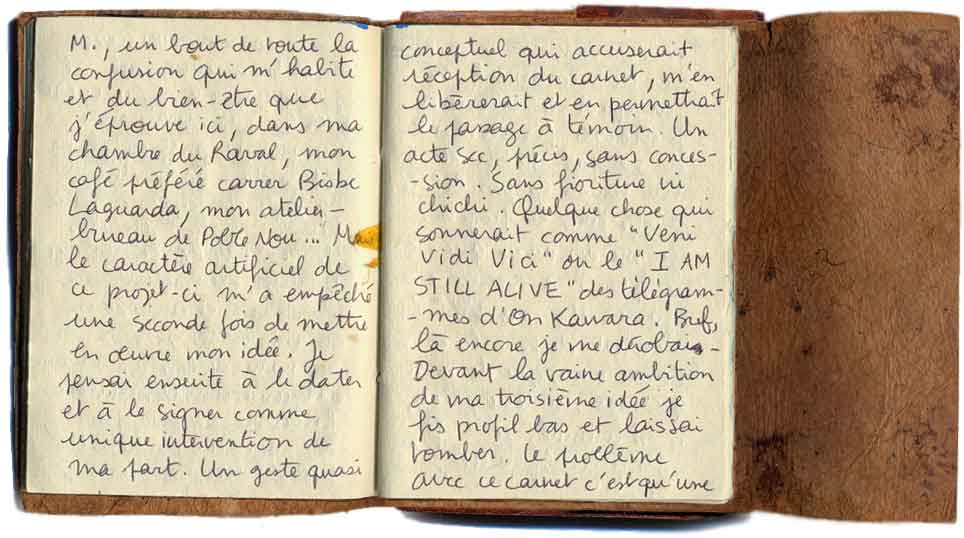 M., un bout de toute la
confusion qui m'habite
et du bien-être que
j'éprouve ici, dans ma
chambre du Raval, mon
café préféré carrer Bisbe
Laguarda, mon atelier-
bureau de Poble Nou... Mais
le caractère artificiel de
ce projet-ci m'a empêché
une seconde fois de mettre
en œuvre mon idée. Je
pensai ensuite à le dater
et à le signer comme
unique intervention de
ma part. Un geste quasi
conceptuel qui accuserait
réception du carnet, m'en
libèrerait et en permettrait
le passage à témoin. Un
acte sec, précis, sans conces-
-sion. Sans fioriture ni
chichi. Quelque chose qui
sonnerait comme "Veni
Vidi Vici" ou le "I AM
STILL ALIVE" des télégram-
-mes d'On Kawara. Bref,
là encore je me dérobais.
Devant la vaine ambition
de ma troisième idée je
fis profil bas et laissai
tomber. Le problème
avec ce carnet c'est qu'une